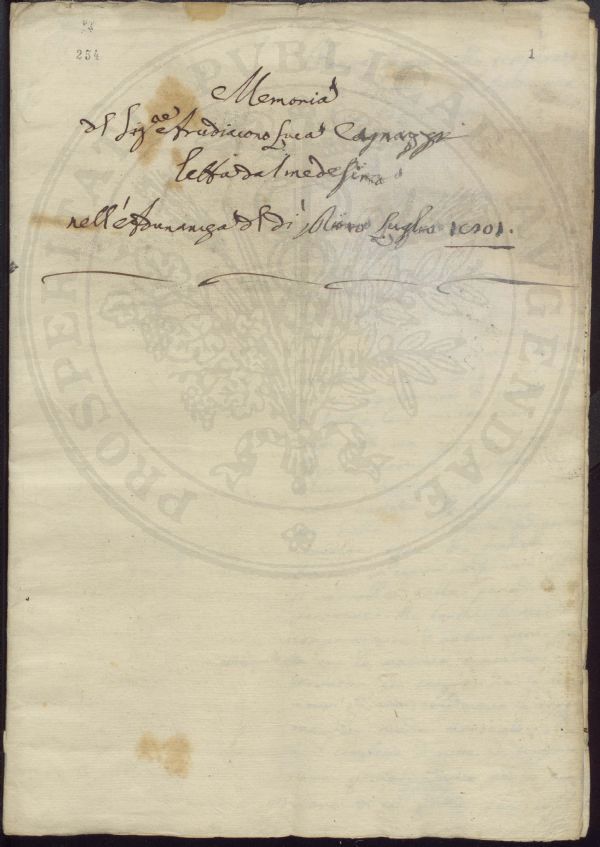 254
1
Memoria
del Sig.re Arcidiacono Luca Cagnazzi
letta dal medesimo
nell'Adunanza del dì Luglio 1801.
PROSPERITATI PUBLICAE AUGENDAE